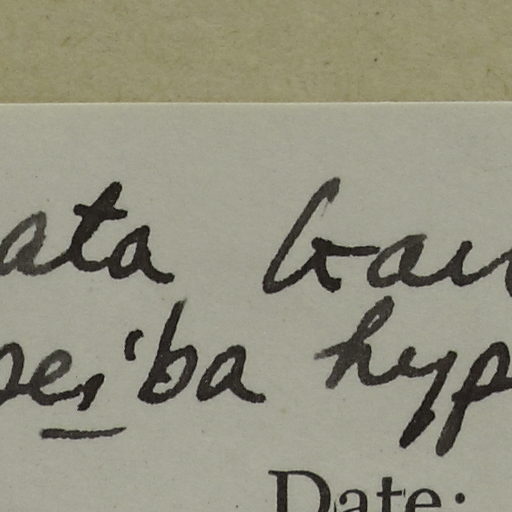 ata Gau
peiba hyp
Date: